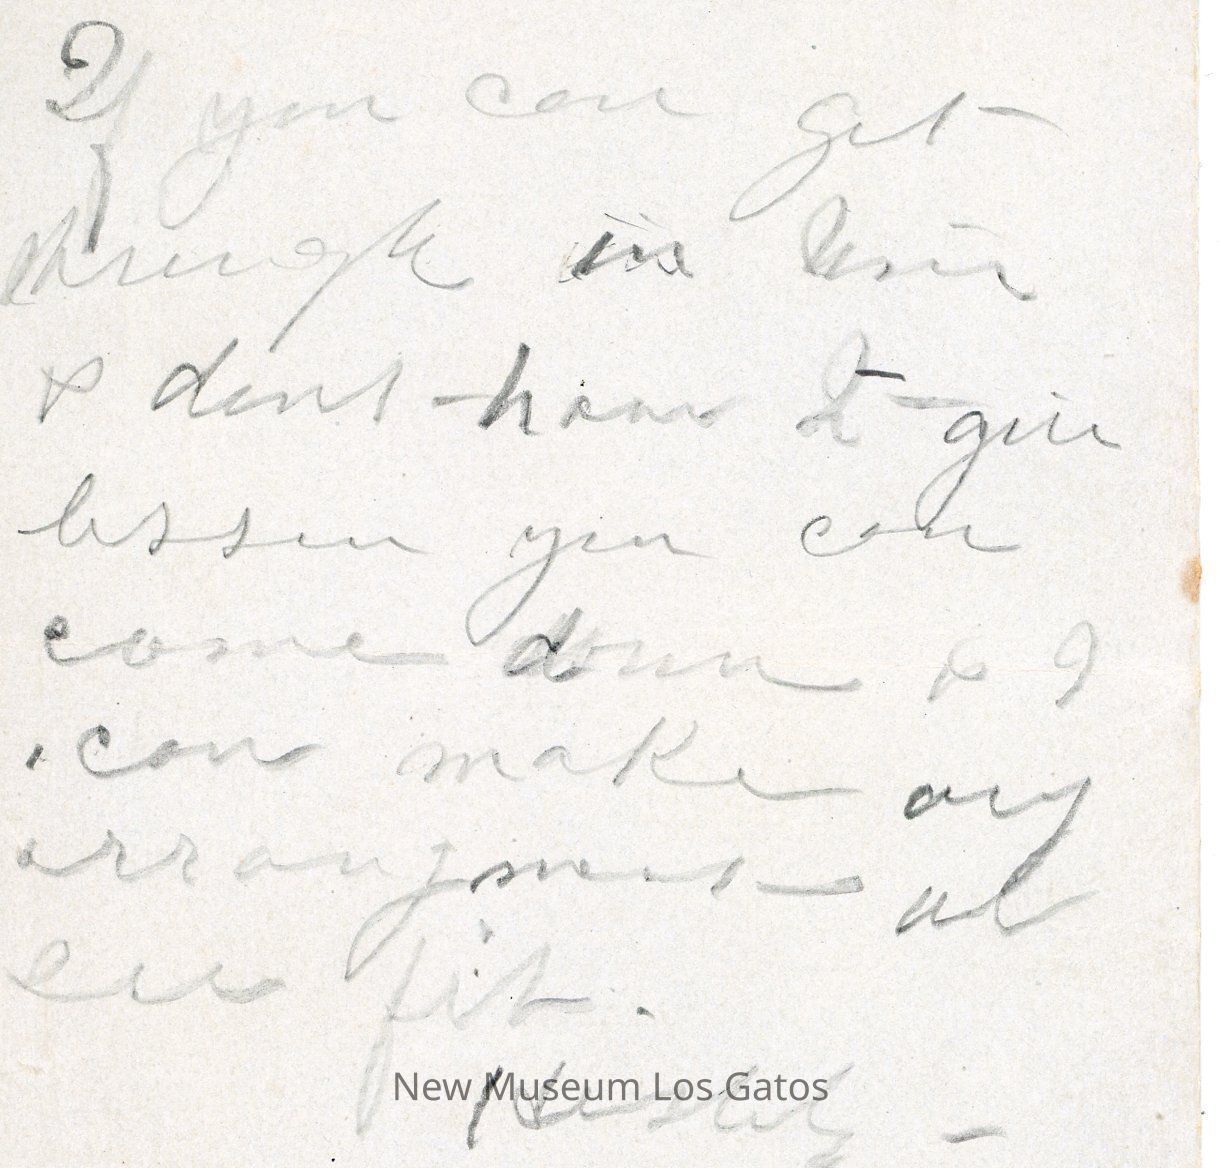 If you can get
through in time
& dont have to give
lesson you can
come down & I
can make any
arrangment we
see fit.
Hastily –
New Museum Los Gatos